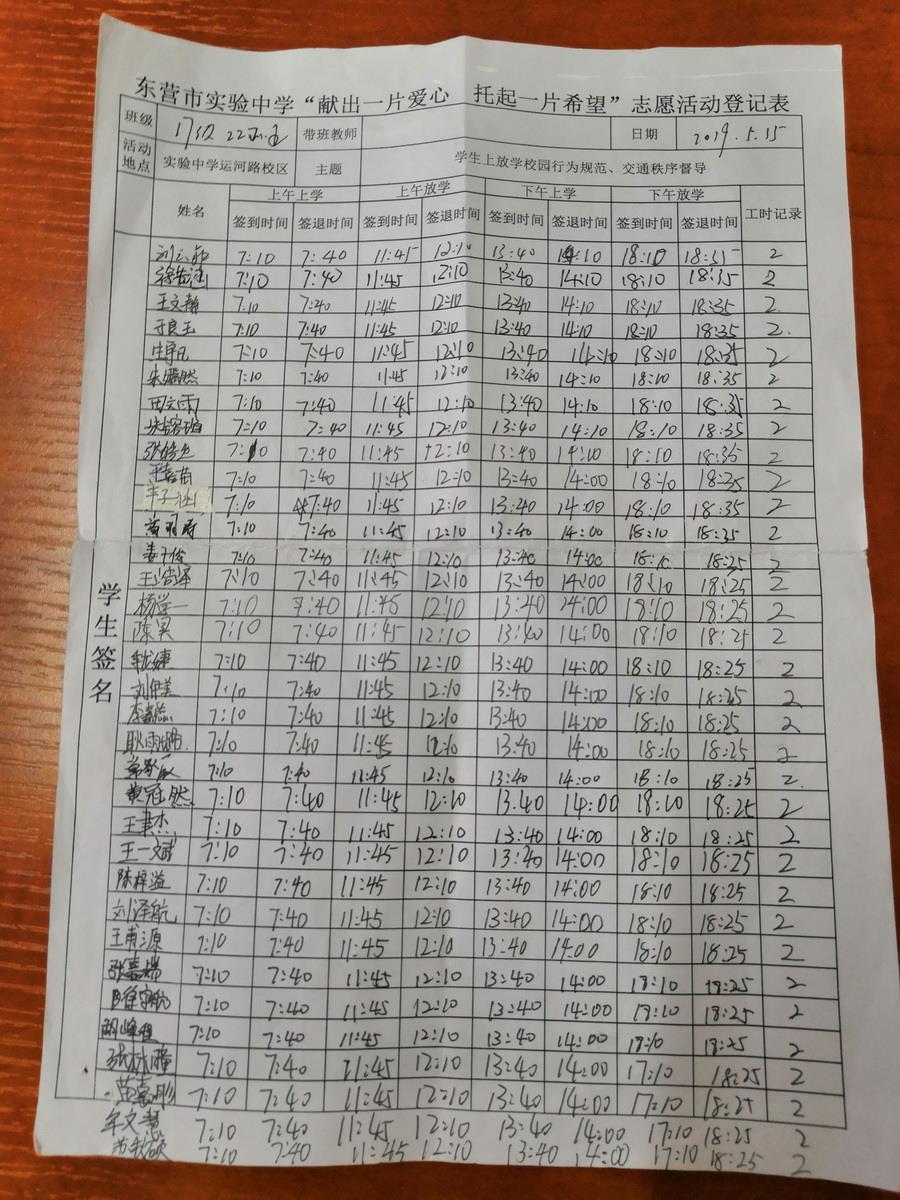 东营市实验中学“献出一片爱心 托起一片希望”志愿活动登记表
班级 17级 22 带班教师 日期 2019.5.15
活动地点 实验中学运河路校区 主题 学生上放学校园行为规范、交通秩序督导
姓名 上午上学 上午放学 下午上学 下午放学 工时记录
签到时间 签退时间 签到时间 签退时间 签到时间 签退时间 签到时间 签退时间
学生签名
7:10 7:40 11:45 12:10 13:40 14:10 18:10 18:35 2
7:10 7:40 11:45 12:10 13:40 14:10 18:10 18:35 2
王文翰 7:10 7:40 11:45 12:10 13:40 14:10 18:10 18:35 2
于良玉 7:10 7:40 11:45 12:10 13:40 14:10 18:10 18:35 2.
7:10 7:40 11:45 12:10 13:40 14:10 18:10 18:35 2
朱嫣然 7:10 7:40 11:45 12:10 13:40 14:10 18:10 18:35 2
田文雨 7:10 7:40 11:45 12:10 13:40 14:10 18:10 18:35 2
7:10 7:40 11:45 12:10 13:40 14:10 18:10 18:35 2
7:10 7:40 11:45 12:10 13:40 14:00 18:10 18:35 2
7:10 7:40 11:45 12:10 13:40 14:00 18:10 18:35 2
李子涵 7:10 7:40 11:45 12:10 13:40 14:00 18:10 18:35 2
7:10 7:40 11:45 12:10 13:40 14:00 18:10 18:35 2
7:10 7:40 11:45 12:10 13:40 14:00 18:10 18:25 2
王浩泽 7:10 7:40 11:45 12:10 13:40 14:00 18:10 18:25 2
杨学一 7:10 7:40 11:45 12:10 13:40 24:00 18:10 18:25 2
陈昊 7:10 7:40 11:45 12:10 13:40 14:00 18:10 18:25 2
7:10 7:40 11:45 12:10 13:40 14:00 18:10 18:25 2
7:10 7:40 11:45 12:10 13:40 14:00 18:10 18:25 2
7:10 7:40 11:45 12:10 13:40 14:00 18:10 18:25 2
耿雨璐 7:10 7:40 11:45 12:10 13:40 14:00 18:10 18:25 2
7:10 7:40 11:45 12:10 13:40 14:00 18:10 18:25 2
冠然 7:10 7:40 11:45 12:10 13.40 14:00 18:10 18:25 2
王聿杰 7:10 7:40 11:45 12:10 13:40 14:00 18:10 18:25 2
王一斌 7:10 7:40 11:45 12:10 13:40 14:00 18:10 18:25 2
陈梓溢 7:10 7:40 11:45 12:10 13:40 14:00 18:10 18:25 2
刘泽航 7:10 7:40 11:45 12:10 13:40 14:00 18:10 18:25 2
王甫源 7:10 7:40 11:45 12:10 13:40 14:00 18:10 18:25 2
张嘉瑞 7:10 7:40 11:45 12:10 13:40 14:00 18:10 18:25 2
7:10 7:40 11:45 12:10 13:40 14:00 18:10 18:25 2
7:10 7:40 11:45 12:10 13:40 14:00 18:10 18:25 2
7:10 7:40 11:45 12:10 13:40 14:00 17:10 18:25 2
苗嘉彤 7:10 7:40 11:45 12:10 13:40 14:00 17:10 18:25 2
牟文慧 7:10 7:40 11:45 12:10 13:40 14:00 17:10 18:25 2
7:10 7:40 11:45 12:10 13:40 14:00 17:10 18:25 2